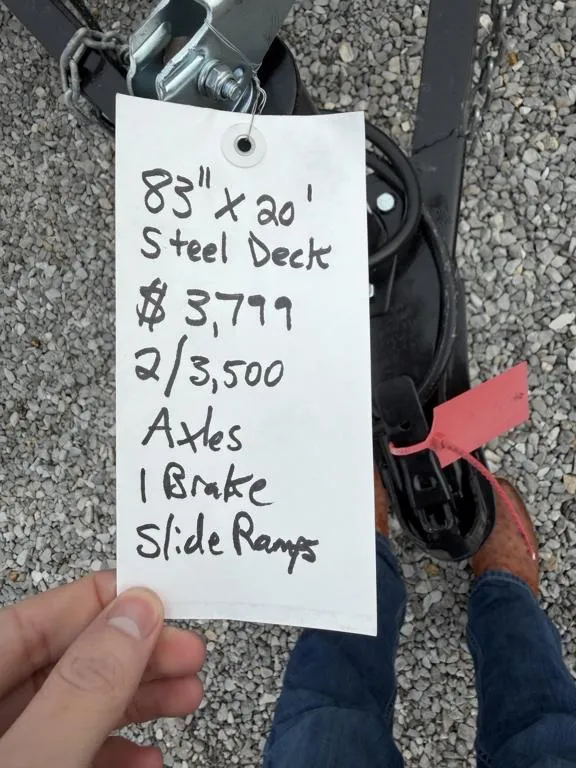 83" X 20'
Steel Deck
$ 3,799
2/3,500
Axles
1 Brake
Slide Ramps